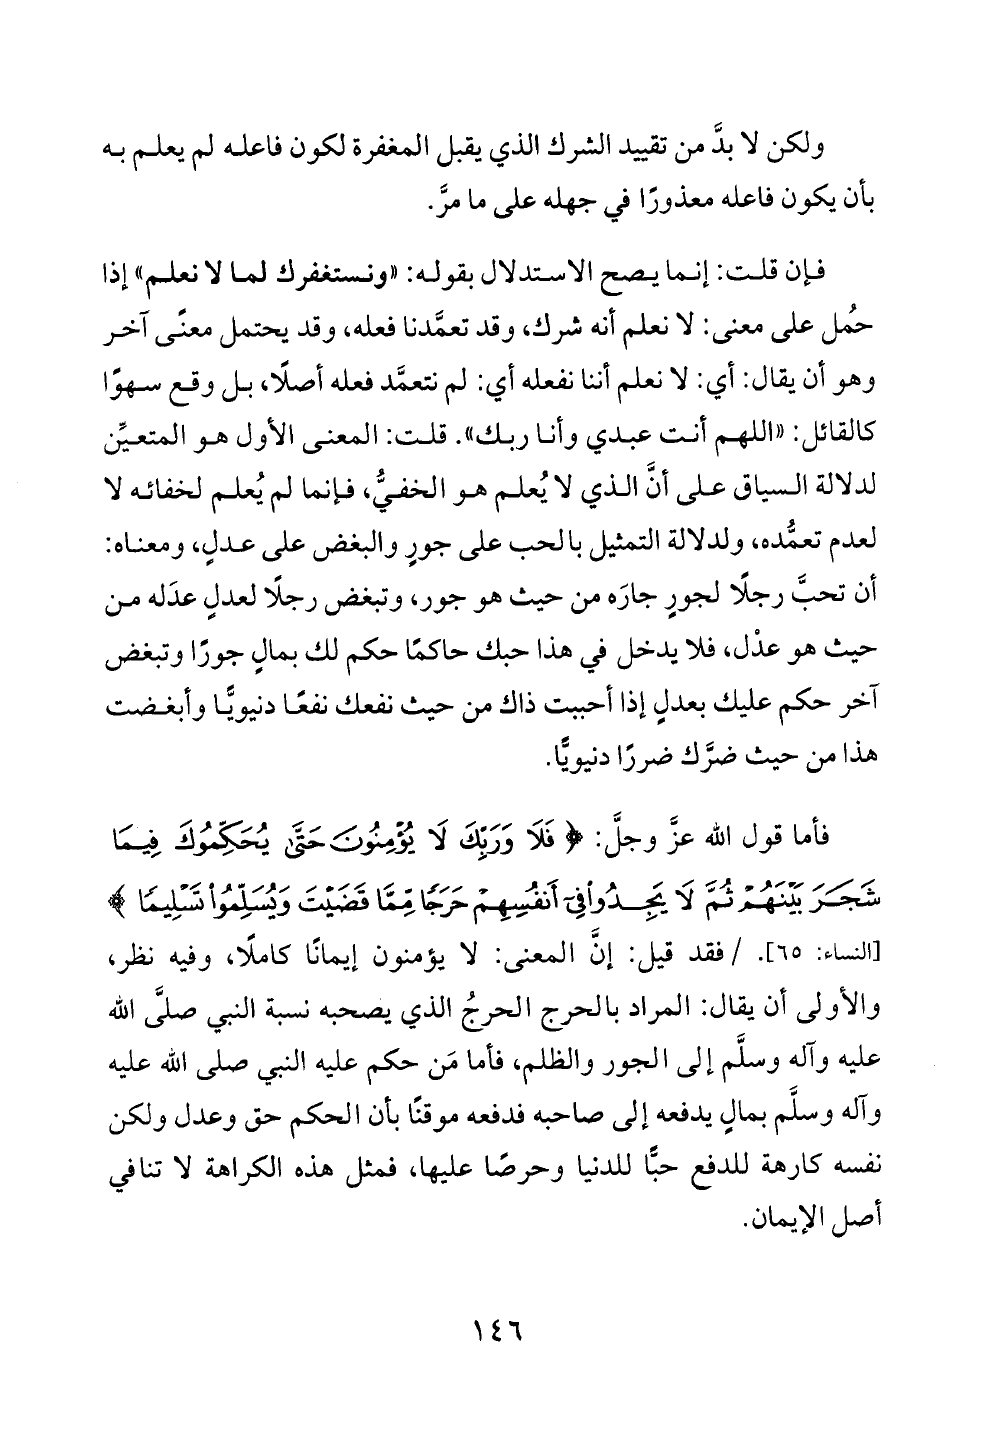 ولكن لا بدَّ من تقييد الشرك الذي يقبل المغفرة لكون فاعله لم يعلم به
بأن يكون فاعله معذورًا في جهله على ما مرَّ.
فإن قلت: إنما يصح الاستدلال بقوله: «ونستغفرك لما لا نعلم» إذا
حُمل على معنى: لا نعلم أنه شرك، وقد تعمَّدنا فعله، وقد يحتمل معنًى آخر
وهو أن يقال: أي: لا نعلم أننا نفعله أي: لم نتعمَّد فعله أصلًا، بل وقع سهوًا
كالقائل: «اللهم أنت عبدي وأنا ربك». قلت: المعنى الأول هو المتعيِّن
لدلالة السياق على أنَّ الذي لا يُعلم هو الخفيُّ، فإنما لم يُعلم لخفائه لا
لعدم تعمُّده، ولدلالة التمثيل بالحب على جورٍ والبغض على عدلٍ، ومعناه:
أن تحبَّ رجلًا لجورٍ جارَه من حيث هو جور، وتبغض رجلًا لعدلٍ عدَله من
حيث هو عدْل، فلا يدخل في هذا حبك حاكمًا حكم لك بمالٍ جورًا وتبغض
آخر حكم عليك بعدلٍ إذا أحببت ذاك من حيث نفعك نفعًا دنيويًّا وأبغضت
هذا من حيث ضرَّك ضررًا دنيويًّا.
فأما قول الله عزَّ وجلَّ: ﴿فَلَا وَرَبِّكَ لَا يُؤْمِنُونَ حَتَّىٰ يُحَكِّمُوكَ فِيمَا
شَجَرَ بَيْنَهُمْ ثُمَّ لَا يَجِدُوا۟ فِىٓ أَنفُسِهِمْ حَرَجًا مِّمَّا قَضَيْتَ وَيُسَلِّمُوا۟ تَسْلِيمًا﴾
[النساء: ٦٥]. / فقد قيل: إنَّ المعنى: لا يؤمنون إيمانًا كاملًا، وفيه نظر،
والأولى أن يقال: المراد بالحرج الحرجُ الذي يصحبه نسبة النبي صلَّى الله
عليه وآله وسلَّم إلى الجور والظلم، فأما مَن حكم عليه النبي صلى الله عليه
وآله وسلَّم بمالٍ يدفعه إلى صاحبه فدفعه موقنًا بأن الحكم حق وعدل ولكن
نفسه كارهة للدفع حبًّا للدنيا وحرصًا عليها، فمثل هذه الكراهة لا تنافي
أصل الإيمان.
١٤٦